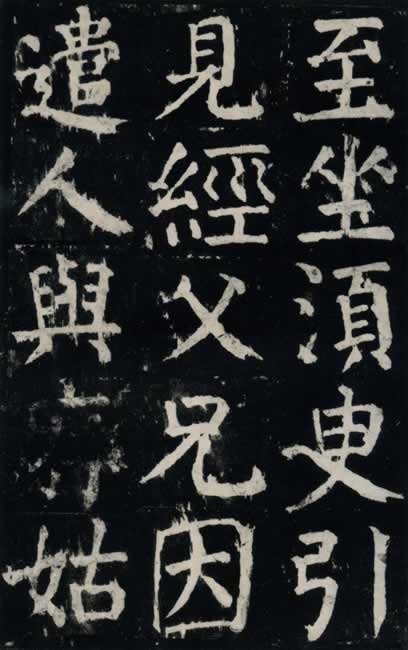 至坐湏臾引
見經父兄因
遣人與姑